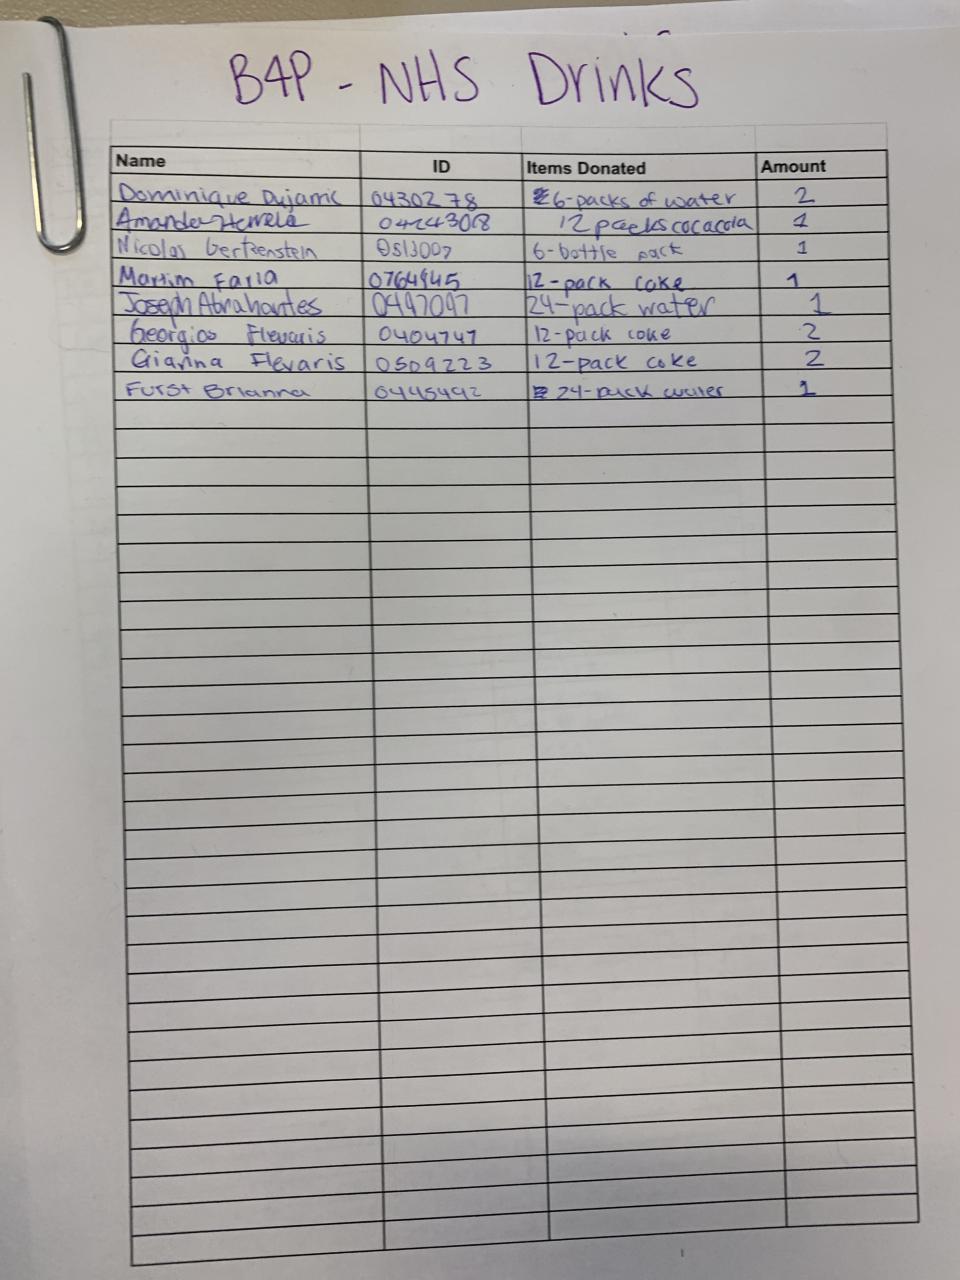 B4P - NHS Drinks
Name ID Items Donated Amount
Dominique Dujarric 0430278 6-packs of water 2
Amanda 12 packs cocacola 1
Nicolas Gertzenstein 6-bottle pack 1
Martim Faria 0764945 12-pack coke 1
Joseph Abrahantes 0497097 24-pack water 1
Georgios Flevaris 0404747 12-pack coke 2
Gianna Flevaris 0509223 12-pack coke 2
Furst Brianna 0445492 24-pack water 1